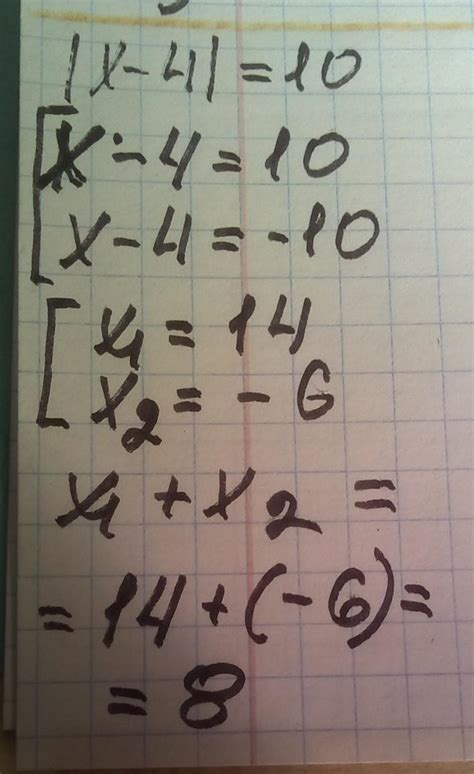 |x-4|=10
[x-4=10
x-4=-10
[x₁=14
x₂=-6
x₁+x₂=
=14+(-6)=
=8